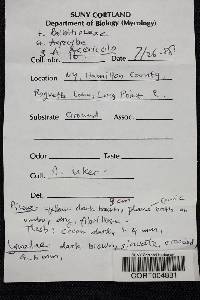 SUNY CORTLAND
Department of Biology (Mycology)
f. Bolbitiaceae
G. Agrocybe
S. A. acericola
Coll. nbr. 16 Date 7/26-88
Location NY, Hamilton County,
Raquette Lake, Long Point R.
Substrate Ground Assoc.
Odor Taste
Coll.
Det.
9 cm conic
Pileus: yellow dark brown, plane with an
umbo, dry, fibrillose.
Flesh: cream dark, 4 mm,
Lamellae dark brown, sinuate, crowded
6 mm,
CORT004831